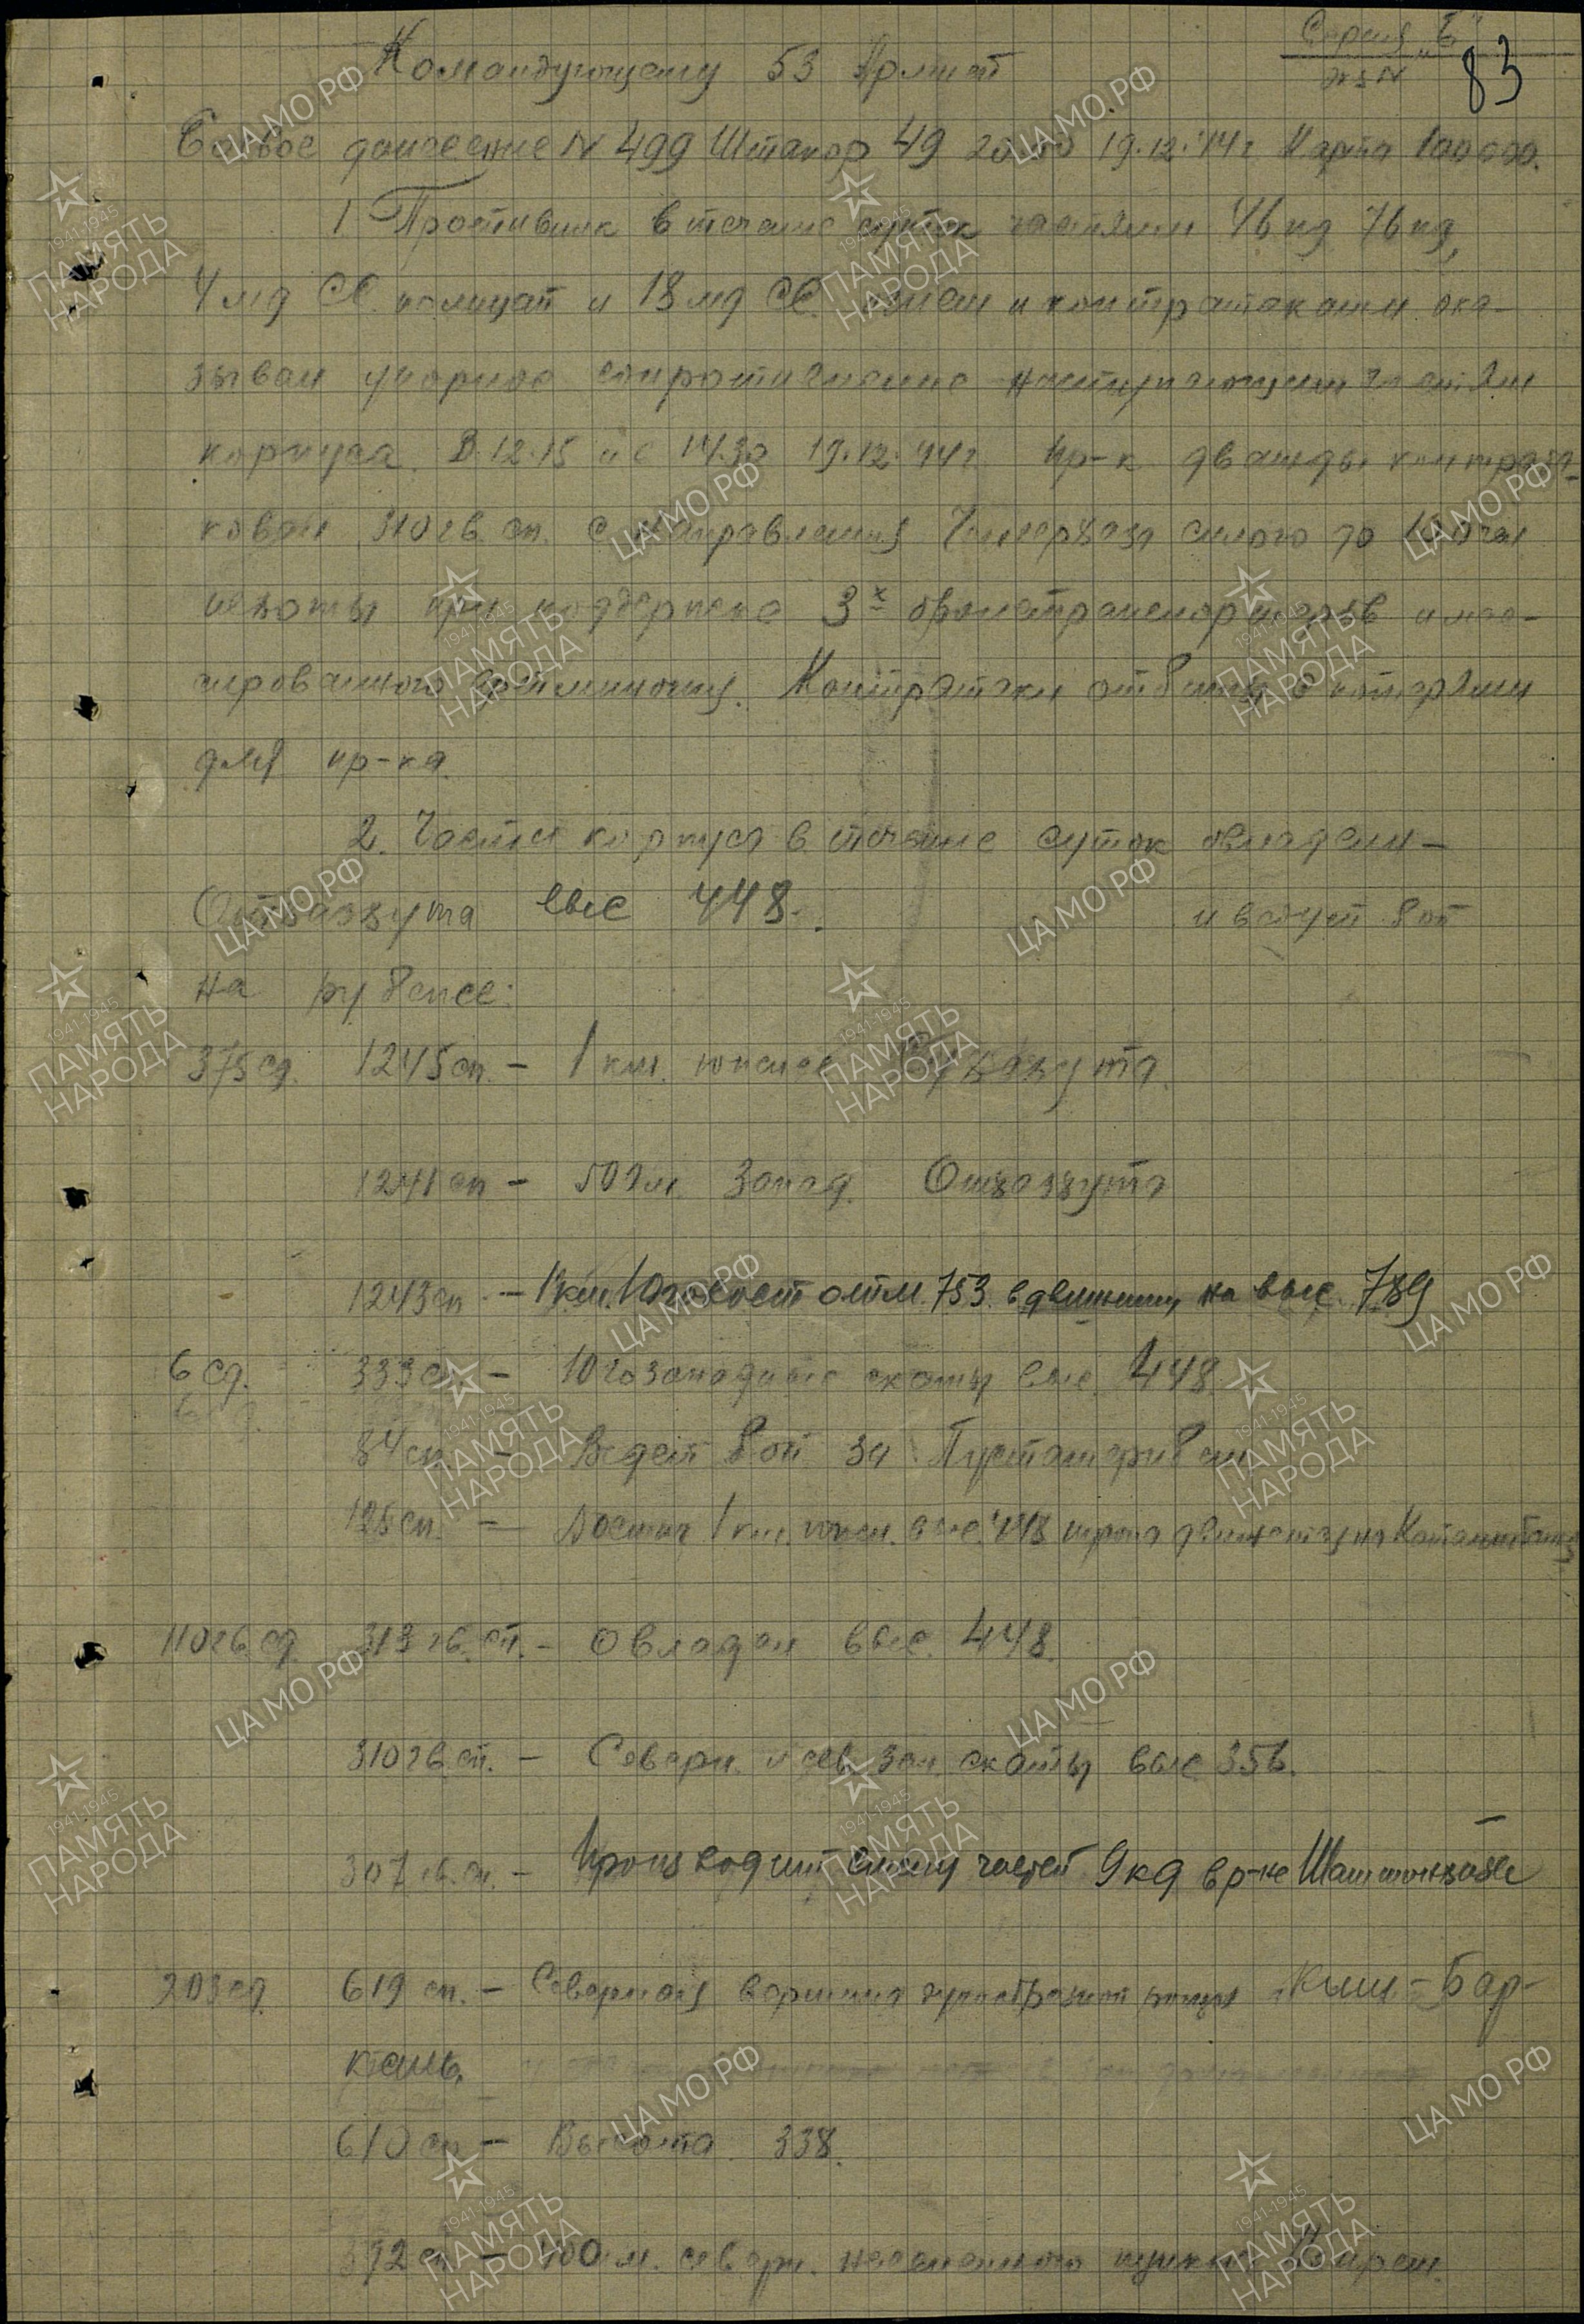 Серия „Б"
экз N
83
Командующему 53 Армией
Боевое донесение N 499 Штакор 49 20.00 19.12.44г Карта 100000.
1. Противник в течение суток частями 46 пд 76 пд,
4 мд СС полицай и 18 мд СС огнем и контратаками ока-
зывал упорное сопротивление наступающим частям
корпуса. В 12.15 и с 14.30 19.12.44г. пр-к дважды контрата-
ковал 310 гв. сп. с направления силою до
пехоты при поддержке 3х бронетранспортеров и мас-
сированного артминогня. Контратаки отбиты с потерями
для пр-ка.
2. Части корпуса в течение суток овладели -
выс 448. и ведут бой
на рубеже:
375 сд. 1245 сп. - 1 км. южнее
1241 сп - 500м. запад.
1243 сп - 1 км. Юговост отм. 753. в движении на выс. 789
6 сд. 333 сп - Югозападные скаты выс. 448.
84 сп. - Ведет бой за
125 сп. - Достиг 1 км. южн. выс. 448 движется на
110 гв. сд. 313 гв. сп. - Овладел выс. 448.
310 гв. сп. - Северн. и сев. зап. скаты выс 356.
307 гв. сп. - Производит смену частей 9 кд в р-не
203 сд. 619 сп. - Северная вершина рощи Киш-Бар-
кань.
610 сп - Высота 338.
592 сп - 400 м. северн. населенного пункта
ЦАМО РФ
1941-1945
ПАМЯТЬ
НАРОДА